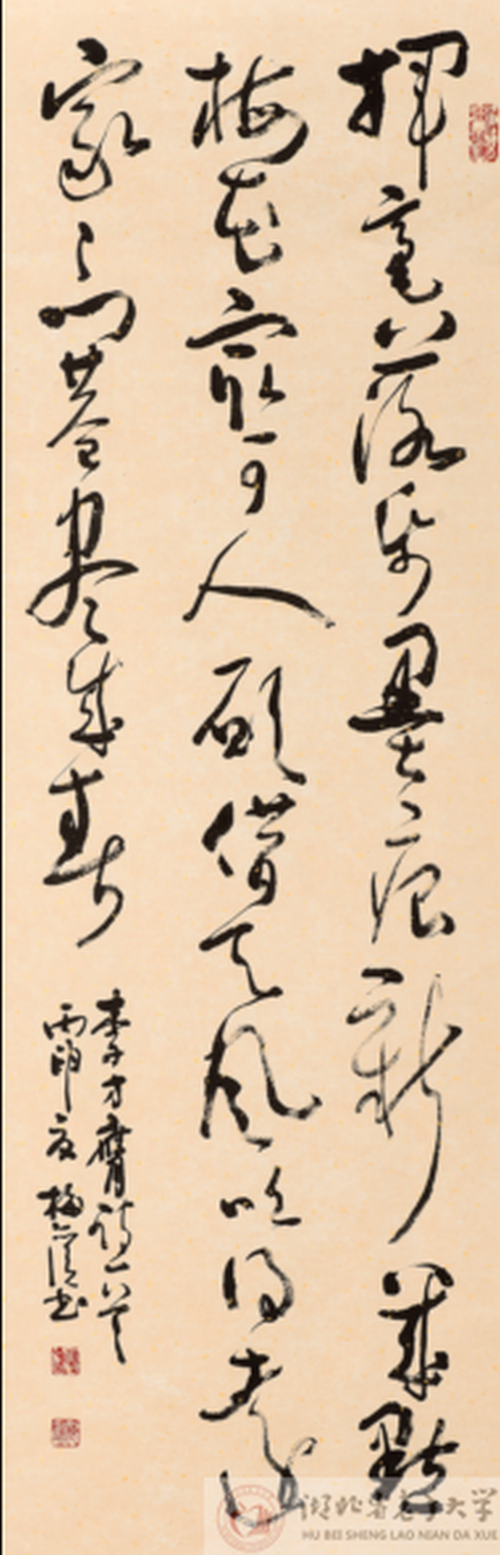 揮毫落紙墨痕新幾點
梅花最可人願借天風吹得遠
家々門巷盡成春
李方膺詩一首
丙申夏梅書
湖北省老年大学
HU BEI SHENG LAO NIAN DA XUE